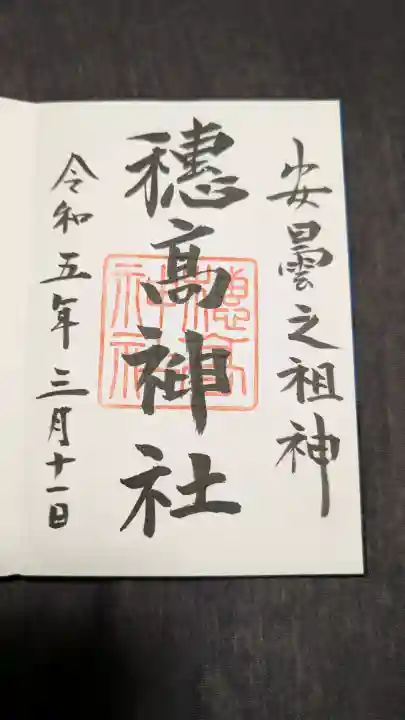 安曇之祖神
穗髙神社
穂高
神社
令和五年三月十一日